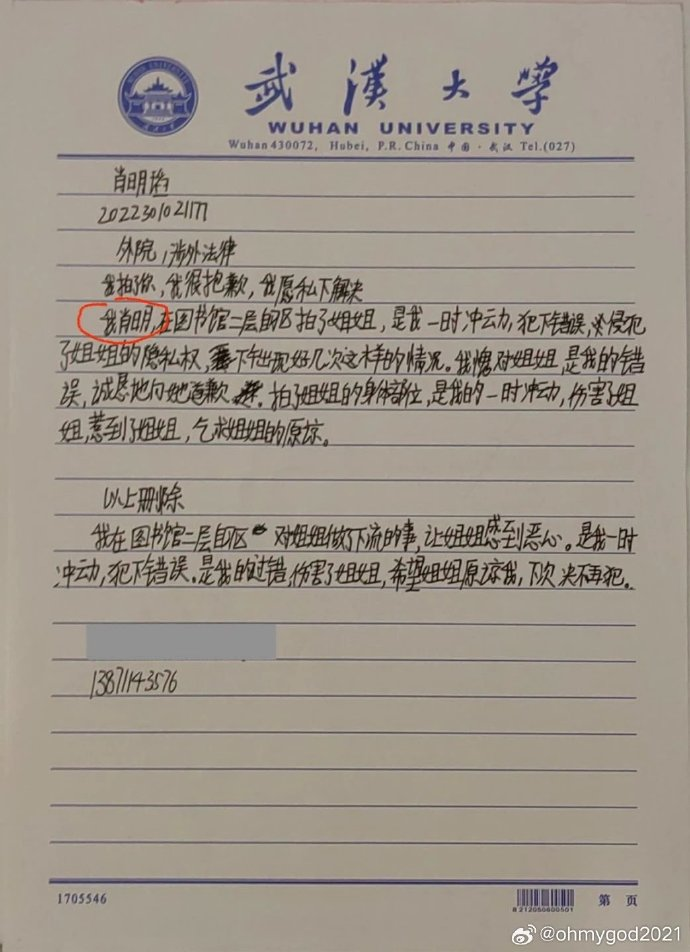 武漢大學
WUHAN UNIVERSITY
Wuhan 430072, Hubei, P.R. China 中国·武汉 Tel.(027)
肖明
2022301021177
外院,涉外法律
我拍了你,我很抱歉,我愿私下解决
我肖明,在图书馆二层自区拍了姐姐,是我一时冲动,犯下错误,侵犯
了姐姐的隐私权,下出现好几次这样的情况。我愧对姐姐,是我的错
误,诚恳地向她道歉。拍了姐姐的身体部位,是我的一时冲动,伤害了姐
姐,惹到了姐姐,乞求姐姐的原谅。
以上删除
我在图书馆二层自区对姐姐做了下流的事,让姐姐感到恶心。是我一时
冲动,犯下错误。是我的过错,伤害了姐姐,希望姐姐原谅我,下次决不再犯。
13871143576
1705546
8 212050600501
第 页
@ohmygod2021